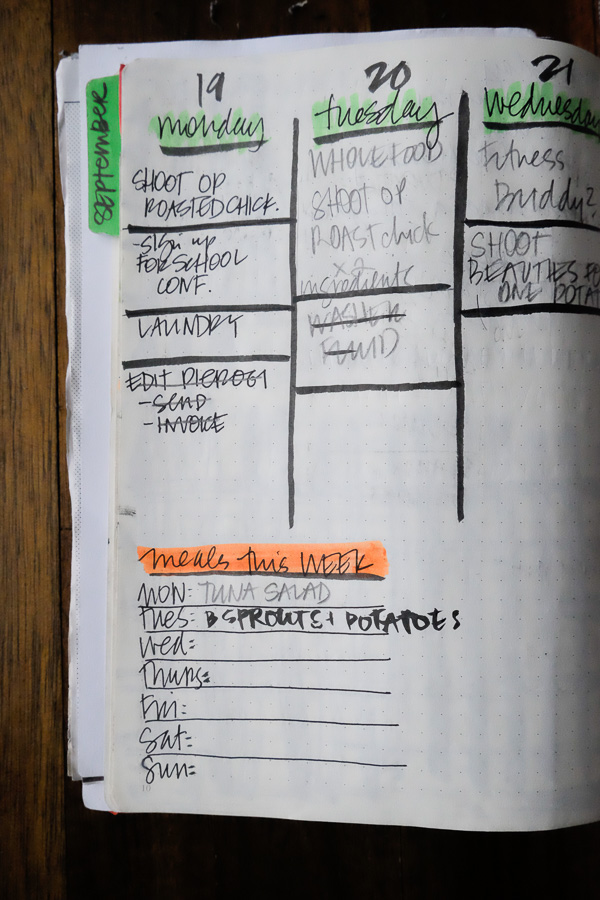 september
19
monday
SHOOT OP
ROASTED CHICK.
-sign up
FOR SCHOOL
CONF.
LAUNDRY
EDIT PIEROGI
-SEND
-INVOICE
20
tuesday
WHOLE FOOD
SHOOT OP
ROAST chick
x 2
ingredients
WASHER
FLUID
21
wednesday
Fitness
Buddy?
SHOOT
BEAUTIES FO
ONE POTAT
meals this WEEK
MON: TUNA SALAD
tues: B SPROUTS + POTATOES
Wed:
Thurs:
Fri:
Sat:
Sun: